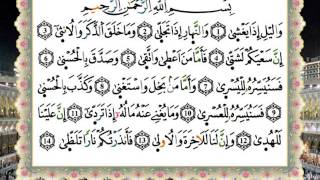 بِسْمِ اللَّهِ الرَّحْمَٰنِ الرَّحِيمِ
وَاللَّيْلِ إِذَا يَغْشَىٰ ﴿١﴾ وَالنَّهَارِ إِذَا تَجَلَّىٰ ﴿٢﴾ وَمَا خَلَقَ الذَّكَرَ وَالْأُنثَىٰ ﴿٣﴾
إِنَّ سَعْيَكُمْ لَشَتَّىٰ ﴿٤﴾ فَأَمَّا مَنْ أَعْطَىٰ وَاتَّقَىٰ ﴿٥﴾ وَصَدَّقَ بِالْحُسْنَىٰ ﴿٦﴾
فَسَنُيَسِّرُهُ لِلْيُسْرَىٰ ﴿٧﴾ وَأَمَّا مَنْ بَخِلَ وَاسْتَغْنَىٰ ﴿٨﴾ وَكَذَّبَ بِالْحُسْنَىٰ ﴿٩﴾
فَسَنُيَسِّرُهُ لِلْعُسْرَىٰ ﴿١٠﴾ وَمَا يُغْنِي عَنْهُ مَالُهُ إِذَا تَرَدَّىٰ ﴿١١﴾ إِنَّ عَلَيْنَا
لَلْهُدَىٰ ﴿١٢﴾ وَإِنَّ لَنَا لَلْآخِرَةَ وَالْأُولَىٰ ﴿١٣﴾ فَأَنذَرْتُكُمْ نَارًا تَلَظَّىٰ ﴿١٤﴾